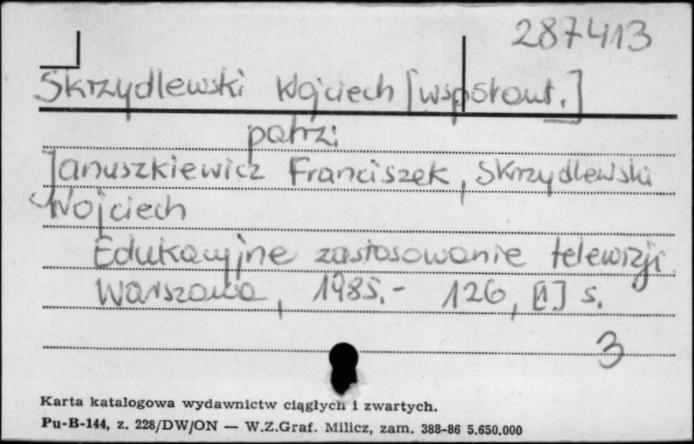 287413
Skrzydlewski Wojciech [współaut.]
patrz:
Januszkiewicz Franciszek, Skrzydlewski
Wojciech
Edukacyjne zastosowanie telewizji.
Warszawa, 1985.- 126, [1] s.
3
Karta katalogowa wydawnictw ciągłych i zwartych.
Pu-B-144, z. 228/DW/ON — W.Z.Graf. Milicz, zam. 388-86 5.650.000